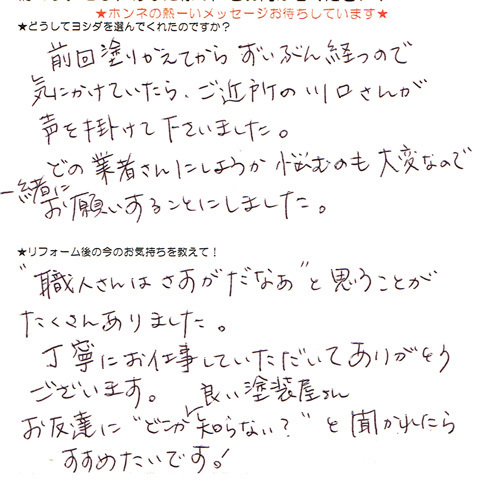 ★ホンネの熱ーいメッセージお待ちしています★
★どうしてヨシダを選んでくれたのですか?
前回塗りかえてから ずいぶん経つので
気にかけていたら、ご近所の川口さんが
声を掛けて下さいました。
どの業者さんにしようか悩むのも大変なので
一緒に
お願いすることにしました。
★リフォーム後の今のお気持ちを教えて!
"職人さんは さすがだなあ"と思うことが
たくさんありました。
丁寧にお仕事していただいてありがとう
ございます。 良い塗装屋さん
お友達に"どこか知らない?"と聞かれたら
すすめたいです!